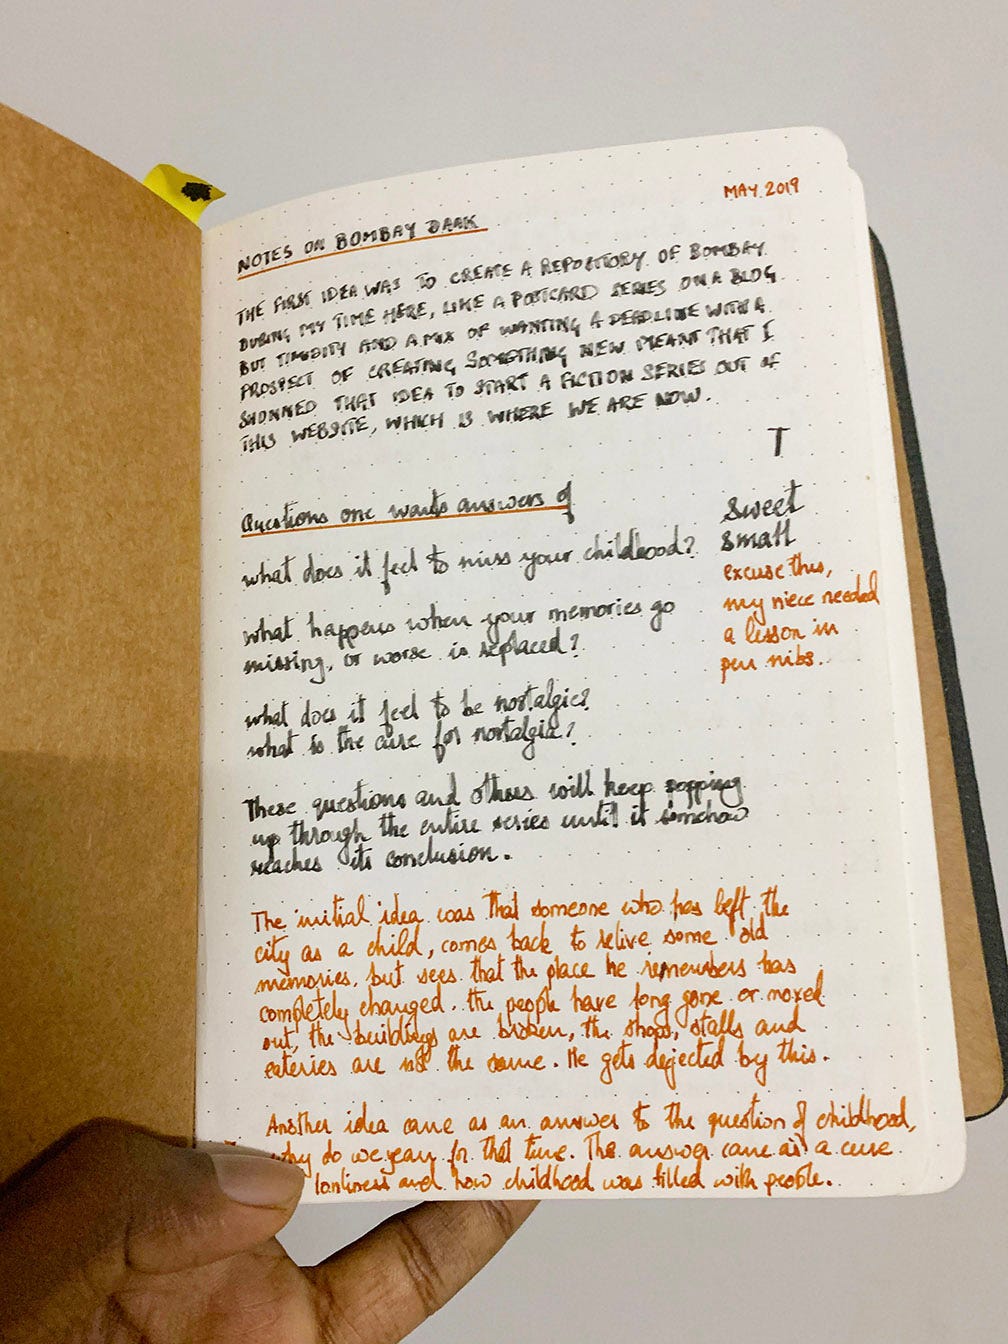 MAY 2019
NOTES ON BOMBAY DAAK
THE FIRST IDEA WAS TO CREATE A REPOSITORY OF BOMBAY
DURING MY TIME HERE, LIKE A POSTCARD SERIES ON A BLOG
BUT TIMIDITY AND A MIX OF WANTING A DEADLINE WITH A
PROSPECT OF CREATING SOMETHING NEW MEANT THAT I
SHUNNED THAT IDEA TO START A FICTION SERIES OUT OF
THIS WEBSITE, WHICH IS WHERE WE ARE NOW.
T
Questions one wants answers of
what does it feel to miss your childhood?
what happens when your memories go
missing, or worse is replaced?
what does it feel to be nostalgic?
what is the cure for nostalgia?
Sweet
Small
excuse this,
my niece needed
a lesson in
pen nibs.
These questions and others will keep popping
up through the entire series until it somehow
reaches its conclusion.
The initial idea was that someone who has left the
city as a child, comes back to relive some old
memories, but sees that the place he remembers has
completely changed. the people have long gone or moved
out, the buildings are broken, the shops, stalls and
eateries are not the same. He gets dejected by this.
Another idea came as an answer to the question of childhood,
why do we yearn for that time. The answer came as a cure
lonliness and how childhood was filled with people.